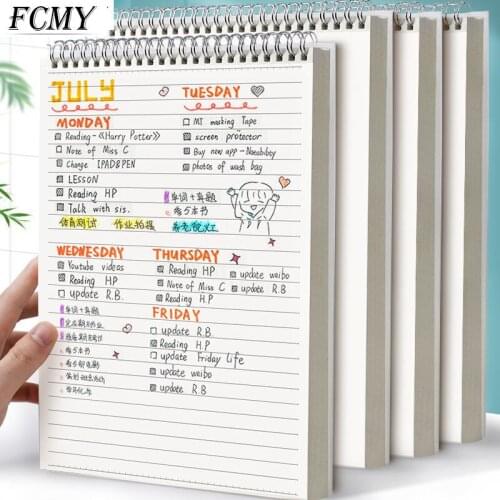 FCMY
JULY
MONDAY
Reading-《Harry Potter》
Note of Miss C
Change IPAD&PEN
LESSON
Reading HP
Talk with sis.
体育测试 作业拍摄
TUESDAY
MT masking Tape
screen protector
Buy new app-Notability
photos of wash bag
单词+真题
看5本书
WEDNESDAY
Youtube videos
Reading HP
update R.B.
单词+真题
看5本书
THURSDAY
Reading HP
update weibo
Note of Miss C
update R.B
Reading H.P
FRIDAY
update R.B
Reading H.P
update Friday Life
update weibo
update R.B